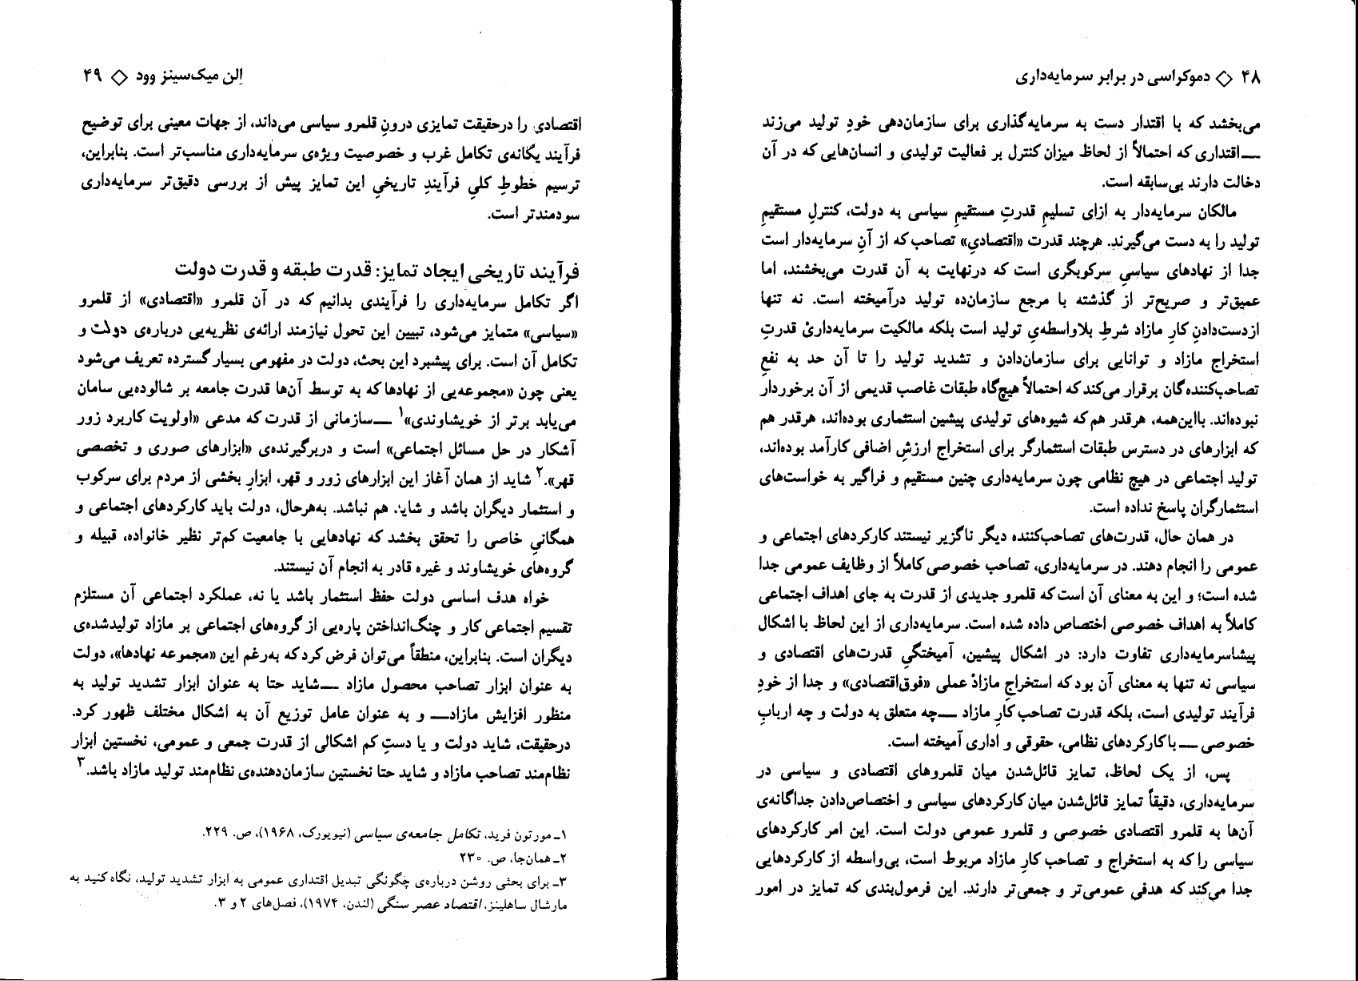 ۴۸ ◇ دموکراسی در برابر سرمایه‌داری
می‌بخشد که با اقتدار دست به سرمایه‌گذاری برای سازمان‌دهی خودِ تولید می‌زند
ــ اقتداری که احتمالاً از لحاظ میزان کنترل بر فعالیت تولیدی و انسان‌هایی که در آن
دخالت دارند بی‌سابقه است.
مالکان سرمایه‌دار به ازای تسلیمِ قدرتِ مستقیمِ سیاسی به دولت، کنترلِ مستقیمِ
تولید را به دست می‌گیرند. هرچند قدرت «اقتصادیِ» تصاحب که از آنِ سرمایه‌دار است
جدا از نهادهای سیاسیِ سرکوبگری است که درنهایت به آن قدرت می‌بخشند، اما
عمیق‌تر و صریح‌تر از گذشته با مرجع سازمان‌ده تولید درآمیخته است. نه تنها
ازدست‌دادنِ کارِ مازاد شرطِ بلاواسطه‌ی تولید است بلکه مالکیت سرمایه‌داریْ قدرتِ
استخراج مازاد و توانایی برای سازمان‌دادن و تشدید تولید را تا آن حد به نفعِ
تصاحب‌کننده‌گان برقرار می‌کند که احتمالاً هیچ‌گاه طبقات غاصب قدیمی از آن برخوردار
نبوده‌اند. بااین‌همه، هرقدر هم که شیوه‌های تولیدی پیشین استثماری بوده‌اند، هرقدر هم
که ابزارهای در دسترس طبقات استثمارگر برای استخراج ارزشِ اضافی کارآمد بوده‌اند،
تولید اجتماعی در هیچ نظامی چون سرمایه‌داری چنین مستقیم و فراگیر به خواست‌های
استثمارگران پاسخ نداده است.
در همان حال، قدرت‌های تصاحب‌کننده دیگر ناگزیر نیستند کارکردهای اجتماعی و
عمومی را انجام دهند. در سرمایه‌داری، تصاحب خصوصی کاملاً از وظایف عمومی جدا
شده است؛ و این به معنای آن است که قلمرو جدیدی از قدرت به جای اهداف اجتماعی
کاملاً به اهداف خصوصی اختصاص داده شده است. سرمایه‌داری از این لحاظ با اشکال
پیشاسرمایه‌داری تفاوت دارد: در اشکال پیشین، آمیختگیِ قدرت‌های اقتصادی و
سیاسی نه تنها به معنای آن بود که استخراجِ مازادْ عملی «فوق‌اقتصادی» و جدا از خودِ
فرآیند تولیدی است، بلکه قدرت تصاحب کارِ مازاد ــ چه متعلق به دولت و چه اربابِ
خصوصی ــ با کارکردهای نظامی، حقوقی و اداری آمیخته است.
پس، از یک لحاظ، تمایز قائل‌شدن میان قلمروهای اقتصادی و سیاسی در
سرمایه‌داری، دقیقاً تمایز قائل‌شدن میان کارکردهای سیاسی و اختصاص‌دادن جداگانه‌ی
آن‌ها به قلمرو اقتصادی خصوصی و قلمرو عمومی دولت است. این امر کارکردهای
سیاسی را که به استخراج و تصاحب کارِ مازاد مربوط است، بی‌واسطه از کارکردهایی
جدا می‌کند که هدفی عمومی‌تر و جمعی‌تر دارند. این فرمول‌بندی که تمایز در امور
اِلن میک‌سینز وود ◇ ۴۹
اقتصادی را درحقیقت تمایزی درونِ قلمرو سیاسی می‌داند، از جهات معینی برای توضیح
فرآیند یگانه‌ی تکامل غرب و خصوصیت ویژه‌ی سرمایه‌داری مناسب‌تر است. بنابراین،
ترسیم خطوطِ کلیِ فرآیندِ تاریخیِ این تمایز پیش از بررسی دقیق‌تر سرمایه‌داری
سودمندتر است.
فرآیند تاریخیِ ایجاد تمایز: قدرت طبقه و قدرت دولت
اگر تکامل سرمایه‌داری را فرآیندی بدانیم که در آن قلمرو «اقتصادی» از قلمرو
«سیاسی» متمایز می‌شود، تبیین این تحول نیازمند ارائه‌ی نظریه‌یی درباره‌ی دولت و
تکامل آن است. برای پیشبرد این بحث، دولت در مفهومی بسیار گسترده تعریف می‌شود
یعنی چون «مجموعه‌یی از نهادها که به توسط آن‌ها قدرت جامعه بر شالوده‌یی سامان
می‌یابد برتر از خویشاوندی»۱ ــ سازمانی از قدرت که مدعی «اولویت کاربرد زور
آشکار در حل مسائل اجتماعی» است و دربرگیرنده‌ی «ابزارهای صوری و تخصصی
قهر».۲ شاید از همان آغاز این ابزارهای زور و قهر، ابزارِ بخشی از مردم برای سرکوب
و استثمار دیگران باشد و شاید هم نباشد. به‌هرحال، دولت باید کارکردهای اجتماعی و
همگانیِ خاصی را تحقق بخشد که نهادهایی با جامعیت کم‌تر نظیر خانواده، قبیله و
گروه‌های خویشاوند و غیره قادر به انجام آن نیستند.
خواه هدف اساسی دولت حفظ استثمار باشد یا نه، عملکرد اجتماعی آن مستلزم
تقسیم اجتماعی کار و چنگ‌انداختن پاره‌یی از گروه‌های اجتماعی بر مازاد تولیدشده‌ی
دیگران است. بنابراین، منطقاً می‌توان فرض کرد که به‌رغم این «مجموعه نهادها»، دولت
به عنوان ابزار تصاحب محصول مازاد ــ شاید حتا به عنوان ابزار تشدید تولید به
منظور افزایش مازاد ــ و به عنوان عامل توزیع آن به اشکال مختلف ظهور کرد.
درحقیقت، شاید دولت و یا دستِ کم اشکالی از قدرت جمعی و عمومی، نخستین ابزار
نظام‌مند تصاحب مازاد و شاید حتا نخستین سازمان‌دهنده‌ی نظام‌مند تولید مازاد باشد.۳
۱ـ مورتون فرید، تکامل جامعه‌ی سیاسی (نیویورک، ۱۹۶۸)، ص. ۲۲۹.
۲ـ همان‌جا، ص. ۲۳۰
۳ـ برای بحثی روشن درباره‌ی چگونگی تبدیل اقتداری عمومی به ابزار تشدید تولید، نگاه کنید به
مارشال ساهلینز، اقتصاد عصر سنگی (لندن، ۱۹۷۴)، فصل‌های ۲ و ۳.